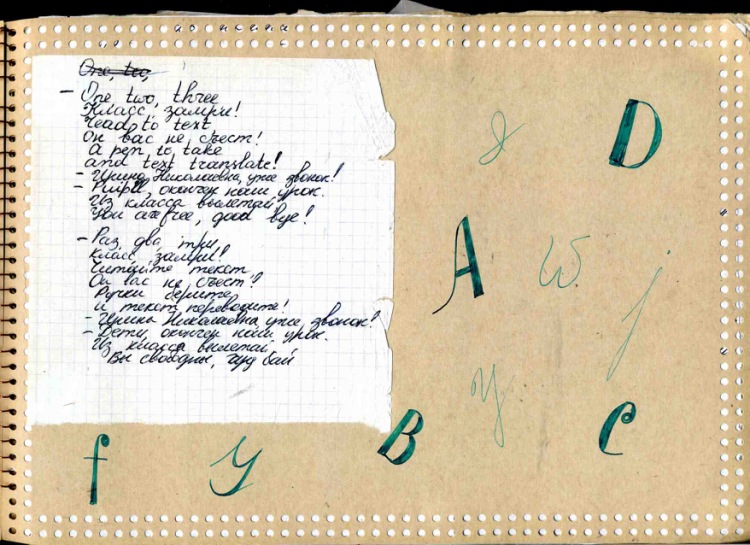 One, two,
- One two, three
Класс, замри!
Read to text
Он вас не съест!
A pen to take
and text translate!
- Ирина Николаевна, уже звонок!
- Pupil, окончен наш урок.
Из класса вылетай
You are free, good bye!
- Раз, два, три,
Класс, замри!
Читайте текст
Он вас не съест!
Ручки берите
и текст переводите!
- Ирина Николаевна, уже звонок!
- Дети, окончен наш урок.
Из класса вылетай
Вы свободны, гуд бай
D
A
W
j
y
B
C
f
y